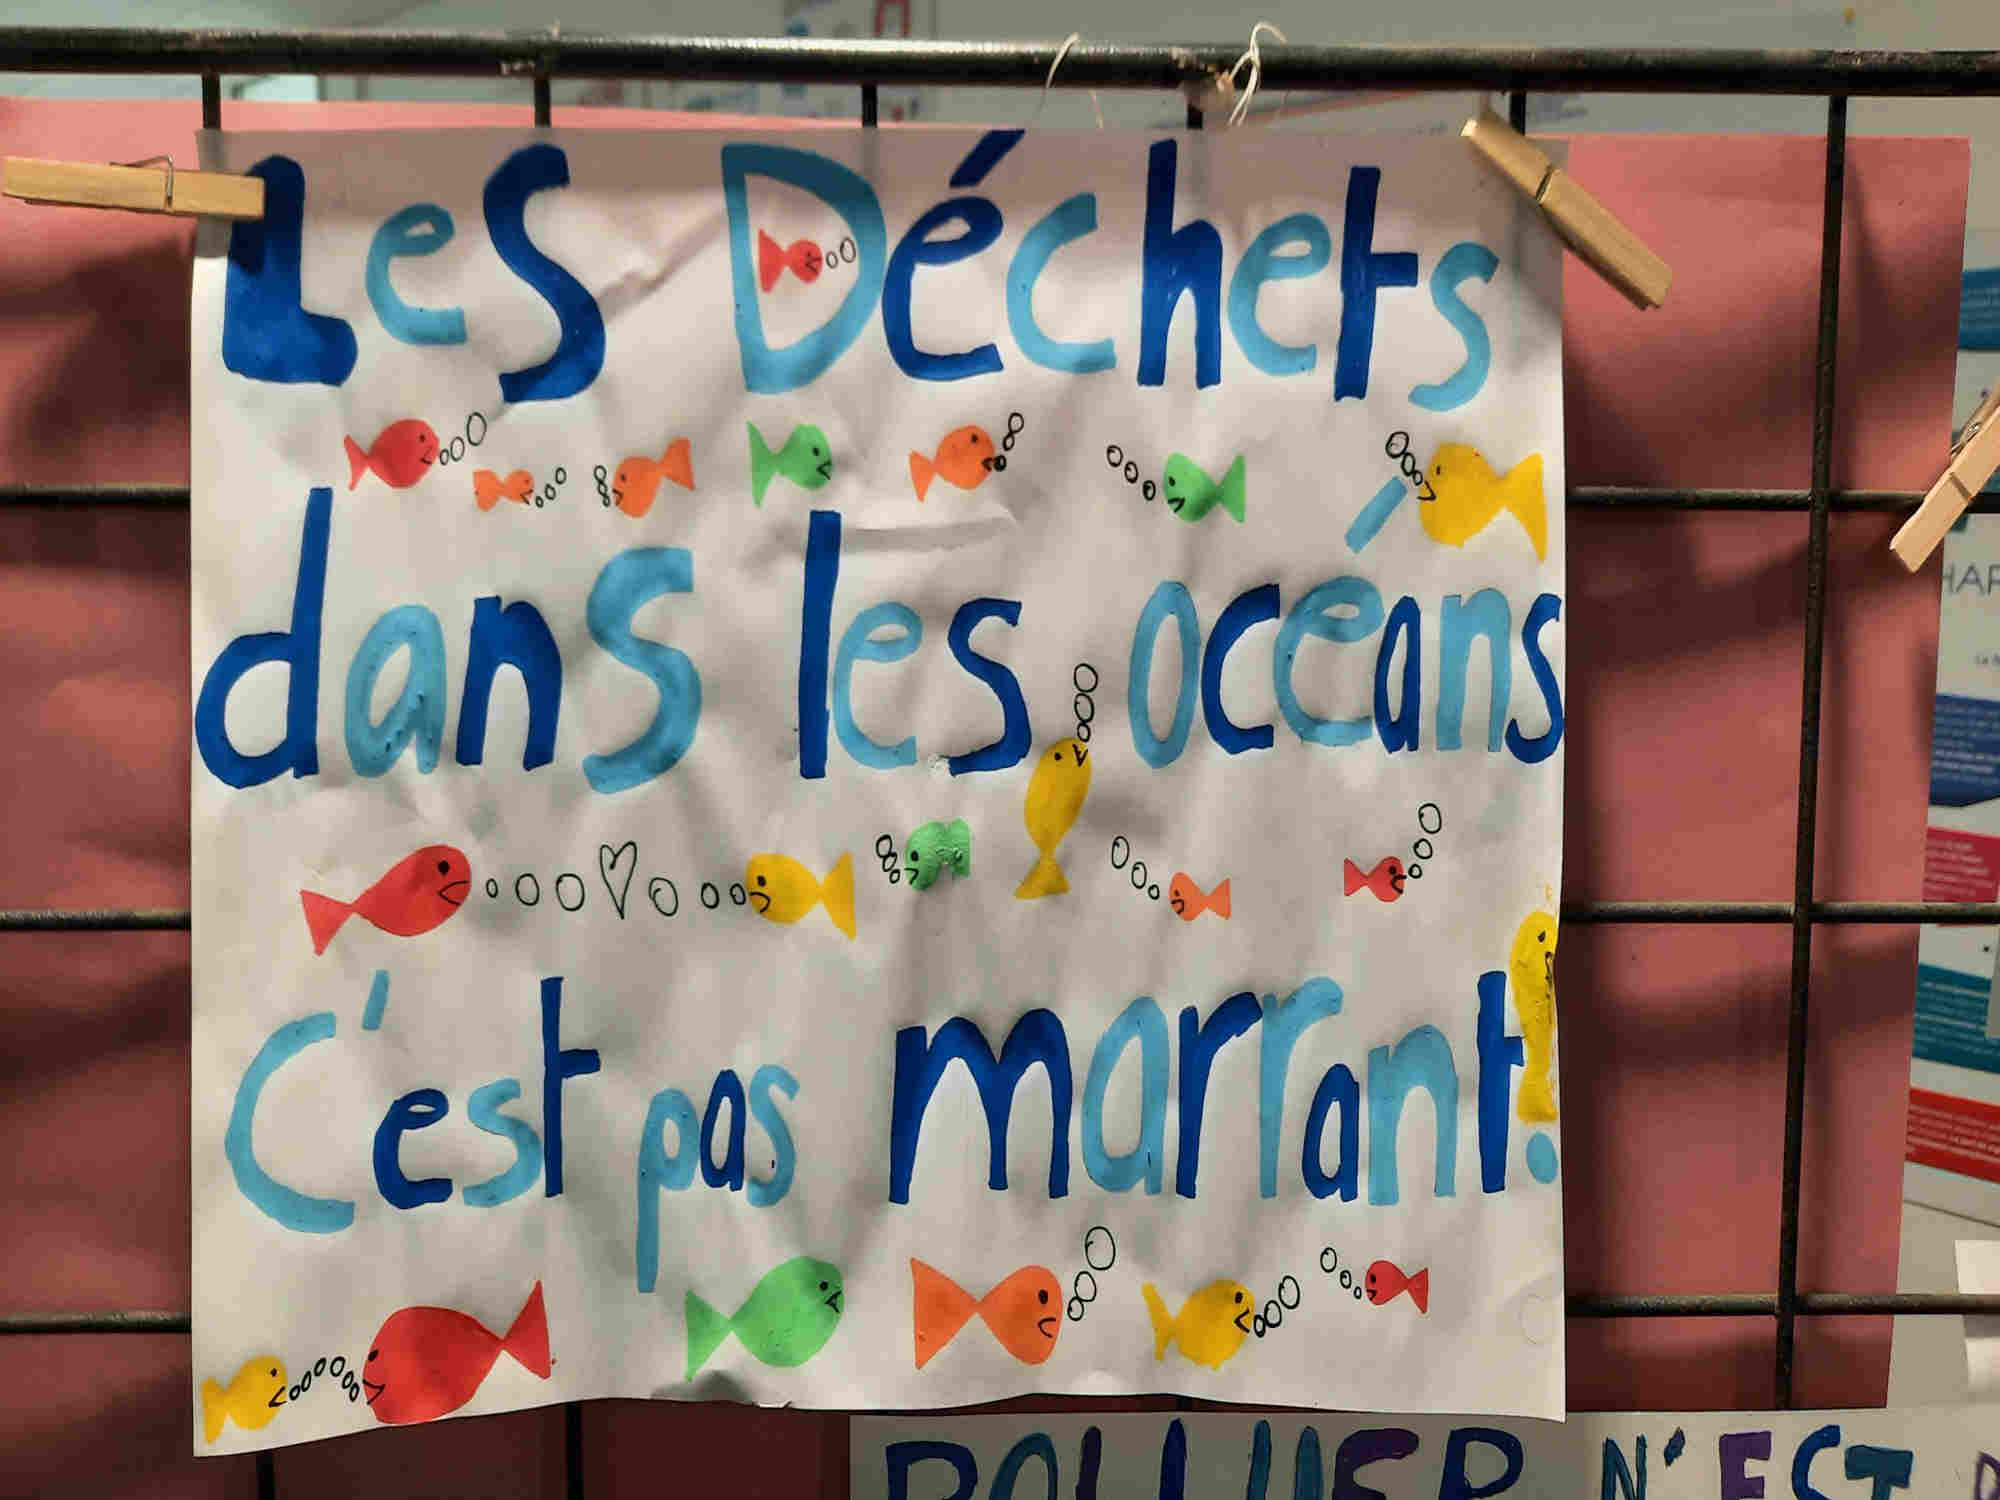 Les Déchets
dans les océans
C'est pas marrant!
POLLUER N'EST
HAR